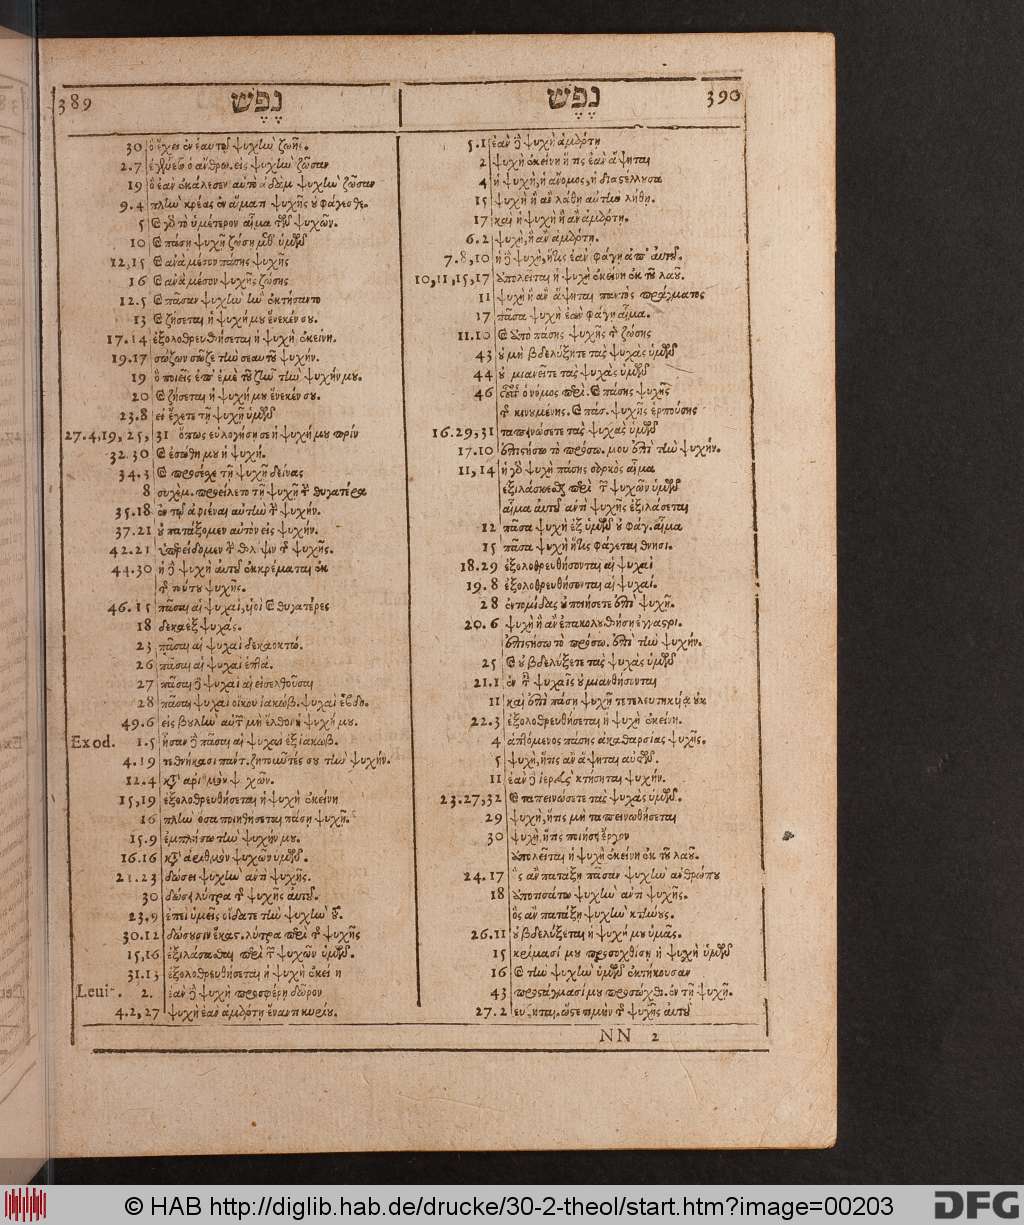 389
נֶפֶשׁ
30 ὃ ἔχει ἐν ἑαυτῷ ψυχὴν ζωῆς.
2.7 ἐγένετο ὁ ἄνθρω. εἰς ψυχὴν ζῶσαν
19 ὃ ἐὰν ἐκάλεσεν αὐτὸ ἀδὰμ ψυχὴν ζῶσαν
9.4 πλὴν κρέας ἐν αἵματι ψυχῆς οὐ φάγεσθε.
5 καὶ γὰρ τὸ ὑμέτερον αἷμα τῶν ψυχῶν.
10 καὶ πάσῃ ψυχῇ ζώσῃ μεθ' ὑμῶν
12,15 καὶ ἀνὰ μέσον πάσης ψυχῆς
16 καὶ ἀνὰ μέσον ψυχῆς ζώσης
12.5 καὶ πᾶσαν ψυχὴν ἣν ἐκτήσαντο
13 καὶ ζήσεται ἡ ψυχή μου ἕνεκέν σου.
17.14 ἐξολοθρευθήσεται ἡ ψυχὴ ἐκείνη.
19.17 σώζων σῶζε τὴν σεαυτοῦ ψυχήν.
19 ὃ ποιεῖς ἐπ' ἐμὲ τοῦ ζῆν τὴν ψυχήν μου.
20 καὶ ζήσεται ἡ ψυχή μου ἕνεκέν σου.
23.8 εἰ ἔχετε τῇ ψυχῇ ὑμῶν
27.4,19,25,31 ὅπως εὐλογήσῃ σε ἡ ψυχή μου πρίν
32.30 καὶ ἐσώθη μου ἡ ψυχή.
34.3 καὶ προσέσχε τῇ ψυχῇ δείνας
8 συχὲμ. προείλετο τῇ ψυχῇ τὴν θυγατέρα
35.18 ἐν τῷ ἀφιέναι αὐτὴν τὴν ψυχήν.
37.21 οὐ πατάξομεν αὐτὸν εἰς ψυχήν.
42.21 ὑπερείδομεν τὴν θλῖψιν τῆς ψυχῆς.
44.30 ἡ δὲ ψυχὴ αὐτοῦ ἐκκρέμαται ἐκ
τῆς τούτου ψυχῆς.
46.15 πᾶσαι αἱ ψυχαὶ, υἱοὶ καὶ θυγατέρες
18 δεκαὲξ ψυχάς.
23 πᾶσαι αἱ ψυχαὶ δεκαοκτώ.
26 πᾶσαι αἱ ψυχαὶ ἑπτά.
27 πᾶσαι δὲ ψυχαὶ αἱ εἰσελθοῦσαι
28 πᾶσαι ψυχαὶ οἴκου ἰακὼβ. ψυχαὶ ἑβδο.
49.6 εἰς βουλὴν αὐτῶν μὴ ἔλθοι ἡ ψυχή μου.
Exod. 1.5 ἦσαν δὲ πᾶσαι αἱ ψυχαὶ ἐξ ἰακὼβ.
4.19 τεθνήκασι παντ. ζητοῦντές σου τὴν ψυχήν.
12.4 κατ' ἀριθμὸν ψυχῶν.
15,19 ἐξολοθρευθήσεται ἡ ψυχὴ ἐκείνη
16 πλὴν ὅσα ποιηθήσεται πάσῃ ψυχῇ.
15.9 ἐμπλήσω τὴν ψυχήν μου.
16.16 κατ' ἀριθμὸν ψυχῶν ὑμῶν.
21.23 δώσει ψυχὴν ἀντὶ ψυχῆς.
30 δώσει λύτρα τῆς ψυχῆς αὐτοῦ.
23.9 ἐπεὶ ὑμεῖς οἴδατε τὴν ψυχὴν τοῦ.
30.12 δώσουσιν ἕκας. λύτρα περὶ τῆς ψυχῆς
15,16 ἐξιλάσασθαι περὶ τῶν ψυχῶν ὑμῶν.
31.13 ἐξολοθρευθήσεται ἡ ψυχὴ ἐκείνη
Leuit. 2. ἐὰν δὲ ψυχὴ προσφέρῃ δῶρον
4.2,27 ψυχὴ ἐὰν ἁμάρτῃ ἔναντι κυρίου.
390
נֶפֶשׁ
5.1 ἐὰν δὲ ψυχὴ ἁμάρτῃ
2 ψυχὴ ἐκείνη ἥτις ἐὰν ἅψηται
4 ἡ ψυχὴ, ἡ ἄνομος, ἡ διαστέλλουσα
15 ψυχὴ ἣ ἂν λάθῃ αὐτὴν λήθῃ.
17 καὶ ἡ ψυχὴ ἣ ἂν ἁμάρτῃ.
6.2 ψυχὴ, ἣ ἂν ἁμάρτῃ.
7.8,10 ἡ δὲ ψυχὴ, ἥτις ἐὰν φάγῃ ἀπ' αὐτοῦ.
10,11,15,17 ἀπολεῖται ἡ ψυχὴ ἐκείνη ἐκ τοῦ λαοῦ.
11 ψυχὴ ἣ ἂν ἅψηται παντὸς πράγματος
17 πᾶσα ψυχὴ ἐὰν φάγῃ αἷμα.
11.10 καὶ ἀπὸ πάσης ψυχῆς τῆς ζώσης
43 οὐ μὴ βδελύξητε τὰς ψυχὰς ὑμῶν
44 οὐ μιανεῖτε τὰς ψυχὰς ὑμῶν
46 οὗτος ὁ νόμος περὶ. καὶ πάσης ψυχῆς
τῆς κινουμένης. καὶ πάσ. ψυχῆς ἑρπούσης
16.29,31 ταπεινώσετε τὰς ψυχὰς ὑμῶν
17.10 ἐπιστήσω τὸ πρόσω. μου ἐπὶ τὴν ψυχήν.
11,14 ἡ γὰρ ψυχὴ πάσης σαρκὸς αἷμα
ἐξιλάσκεσθαι περὶ τῶν ψυχῶν ὑμῶν
αἷμα αὐτοῦ ἀντὶ ψυχῆς ἐξιλάσεται
12 πᾶσα ψυχὴ ἐξ ὑμῶν οὐ φάγ. αἷμα
15 πᾶσα ψυχὴ ἥτις φάγεται θνησι.
18.29 ἐξολοθρευθήσονται αἱ ψυχαὶ
19.8 ἐξολοθρευθήσονται αἱ ψυχαί.
28 ἐντομίδας οὐ ποιήσετε ἐπὶ ψυχῇ.
20.6 ψυχὴ ἣ ἂν ἐπακολουθήσῃ ἐγγαστρι.
ἐπιστήσω τὸ πρόσω. ἐπὶ τὴν ψυχήν.
25 καὶ οὐ βδελύξετε τὰς ψυχὰς ὑμῶν
21.1 ἐν ταῖς ψυχαῖς οὐ μιανθήσονται
11 καὶ ἐπὶ πάσῃ ψυχῇ τετελευτηκυίᾳ οὐκ
22.3 ἐξολοθρευθήσεται ἡ ψυχὴ ἐκείνη.
4 ἁπτόμενος πάσης ἀκαθαρσίας ψυχῆς.
5 ψυχὴ, ἥτις ἂν ἅψηται αὐτῶν.
11 ἐὰν δὲ ἱερεὺς κτήσηται ψυχήν.
23.27,32 καὶ ταπεινώσετε τὰς ψυχὰς ὑμῶν.
29 ψυχὴ, ἥτις μὴ ταπεινωθήσεται
30 ψυχὴ, ἥτις ποιήσει ἔργον
ἀπολεῖται ἡ ψυχὴ ἐκείνη ἐκ τοῦ λαοῦ.
24.17 ὃς ἂν πατάξῃ πᾶσαν ψυχὴν ἀνθρώπου
18 ἀποτισάτω ψυχὴν ἀντὶ ψυχῆς.
ὃς ἂν πατάξῃ ψυχὴν κτήνους.
26.11 οὐ βδελύξεται ἡ ψυχή μου ὑμᾶς.
15 κρίμασί μου προσοχθίσῃ ἡ ψυχὴ ὑμῶν
16 καὶ τὴν ψυχὴν ὑμῶν ἐκτήκουσαν
43 προστάγμασί μου προσώχθι. ἐν τῇ ψυχῇ.
27.2 εὔξηται. ὥστε τιμὴν τῆς ψυχῆς αὐτοῦ
NN 2
© HAB http://diglib.hab.de/drucke/30-2-theol/start.htm?image=00203
DFG